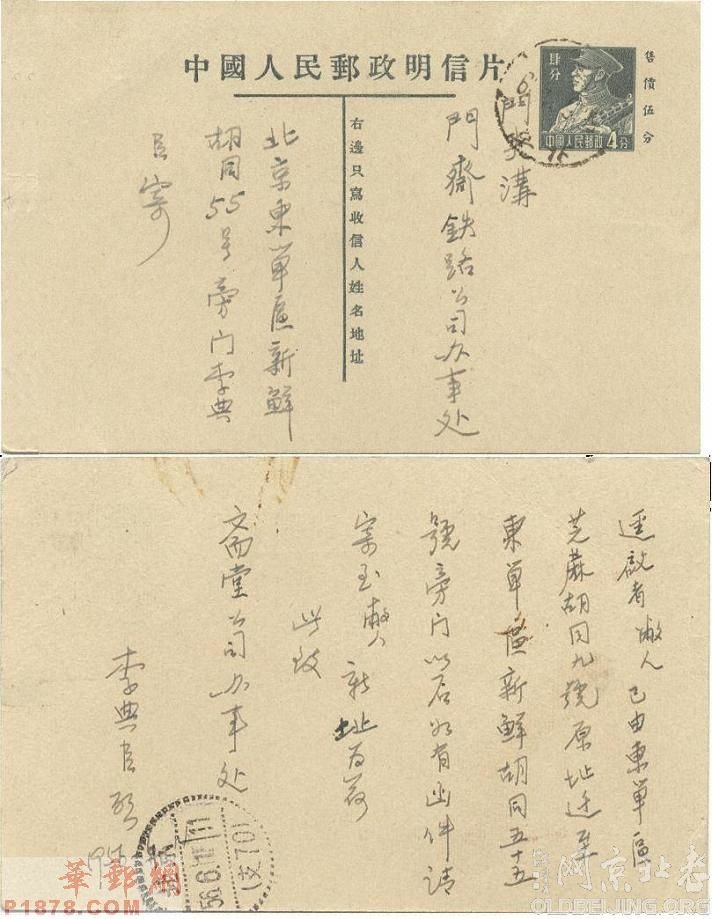 中國人民郵政明信片
售價伍分
肆分
中國人民郵政4分
右邊只寫收信人姓名地址
門 溝
門齋鉄路公司办事处
北京東單區新鮮
胡同55号旁门李典
臣寄
逕啟者敝人已由東單區
芝蔴胡同九號原址迁至
東單區新鮮胡同五十五
號旁门以后如有函件請
寄至敝人新址为荷
此致
斎堂公司办事处
李典臣啟
56.6.11
11
(支70)
華郵網
P1878.COM
网京北老
OLDBEIJING.ORG